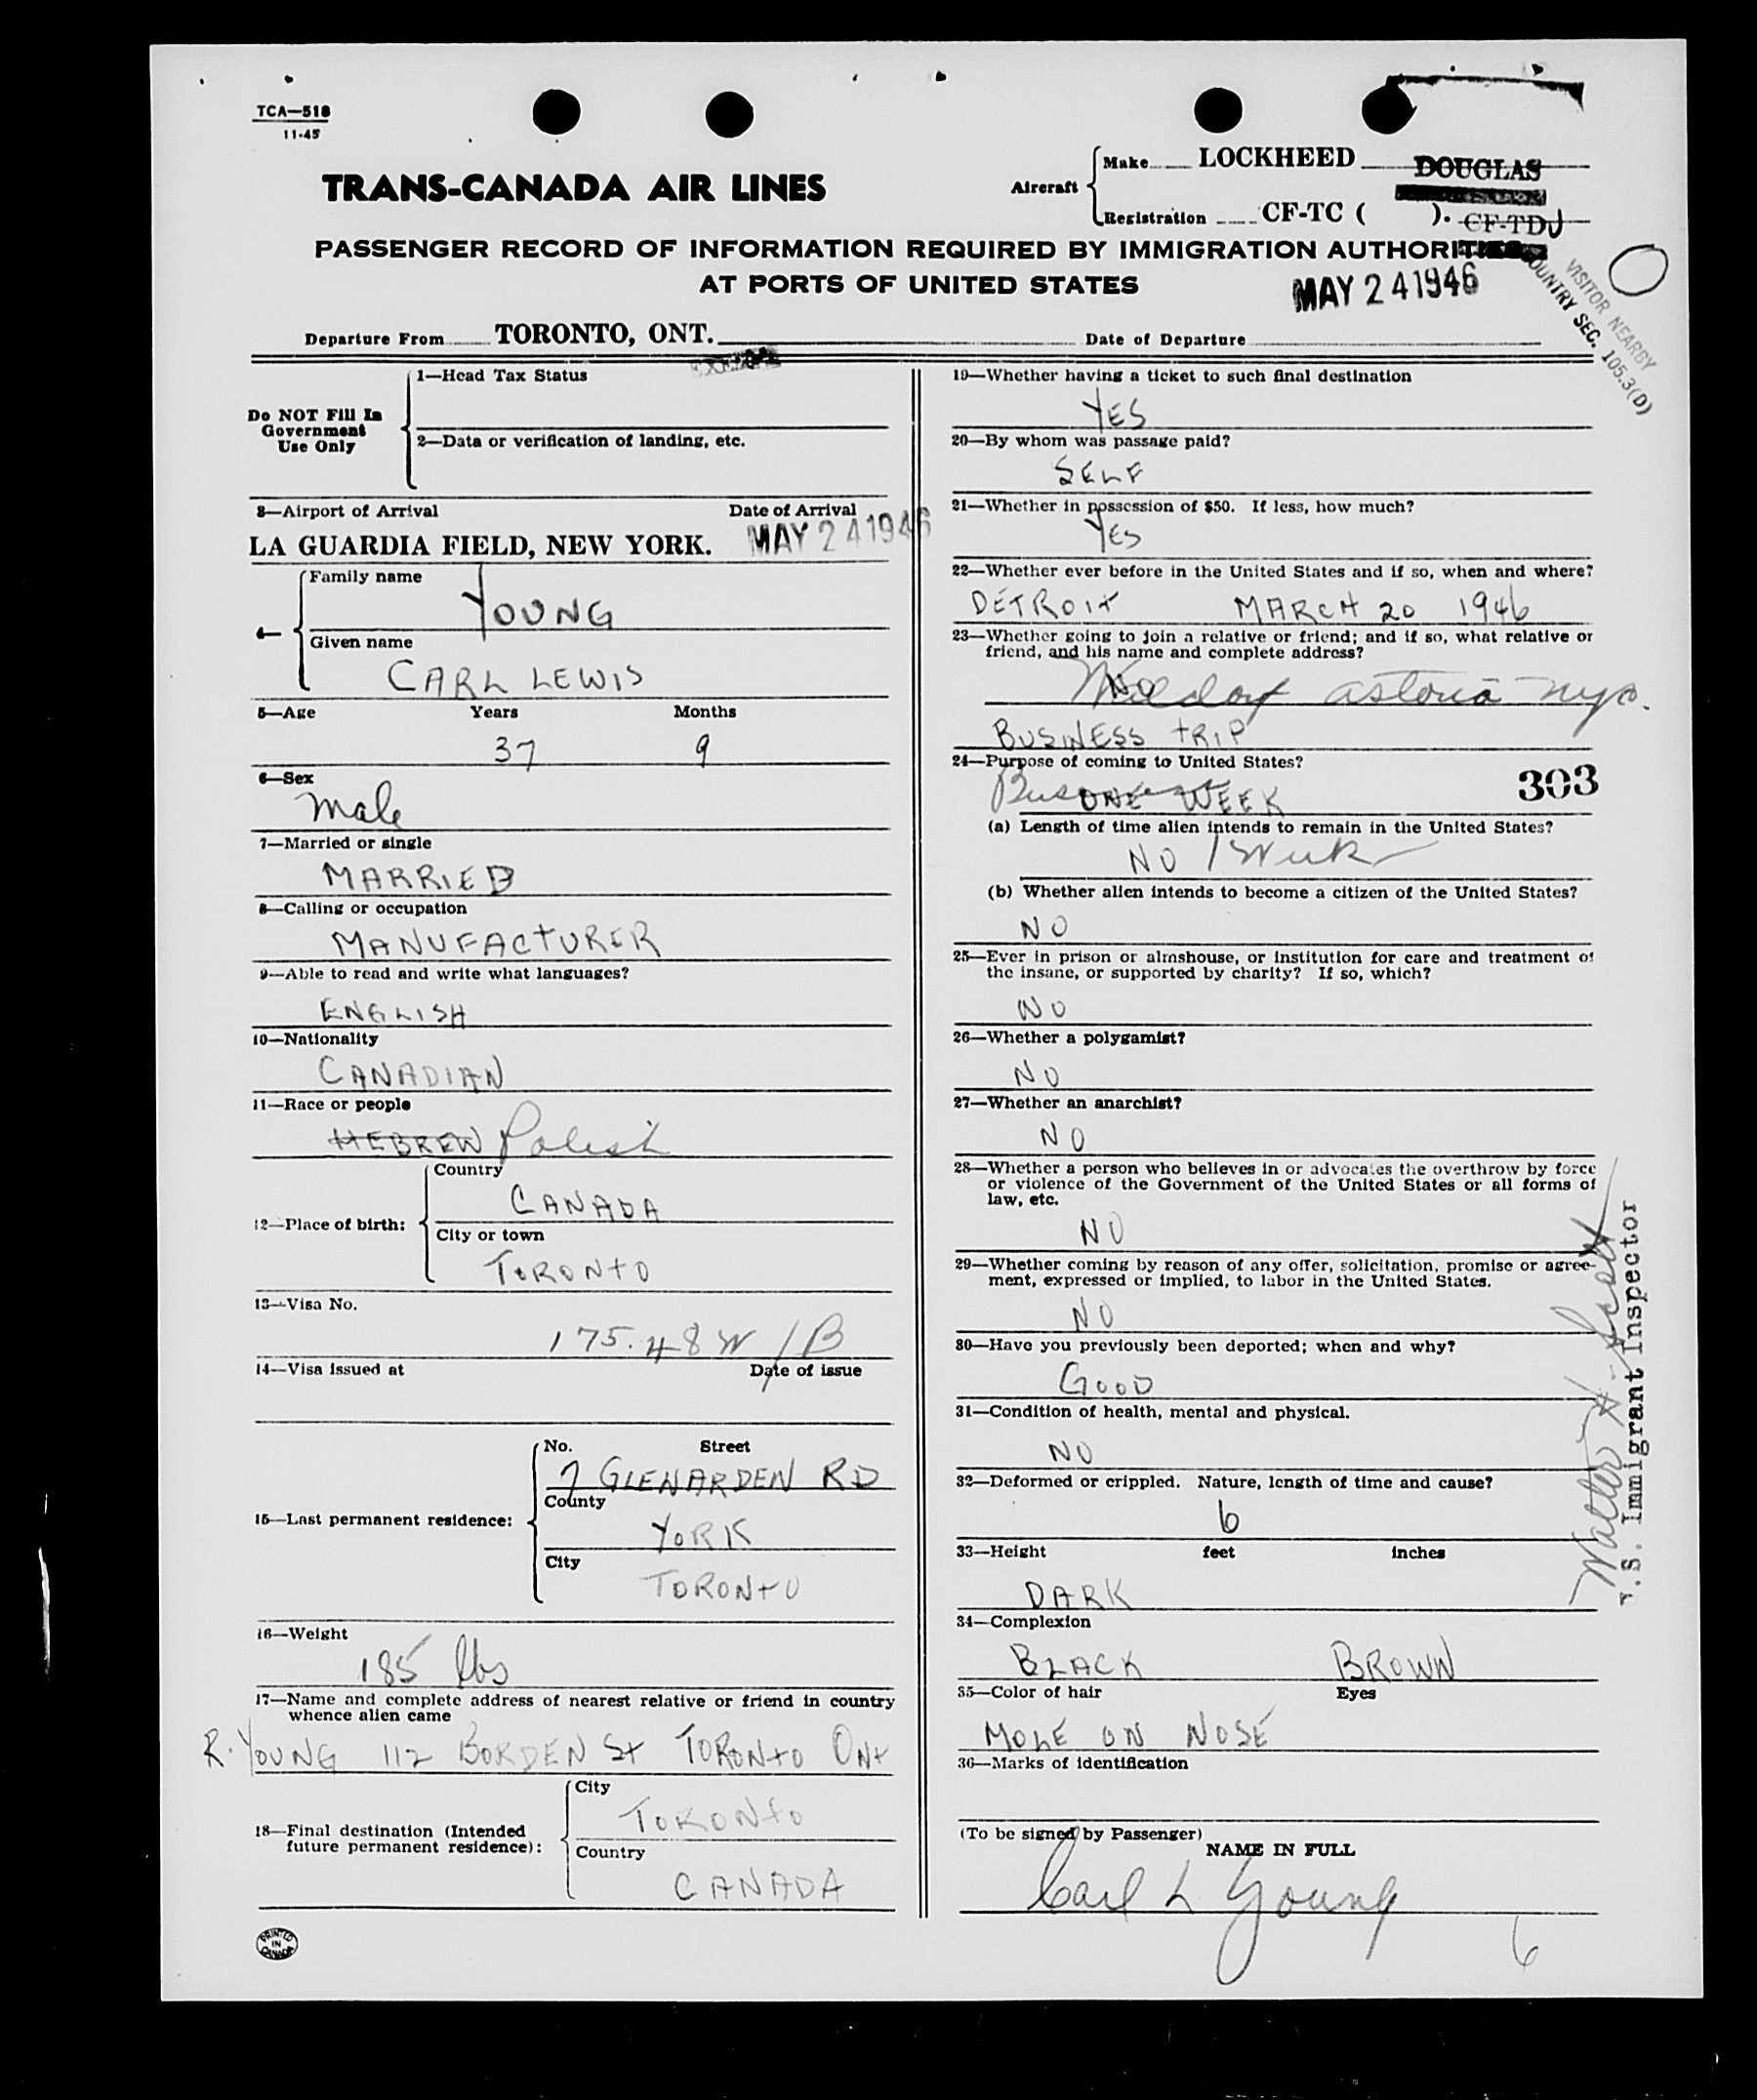 TCA—518
11-45
TRANS-CANADA AIR LINES
Aircraft
Make LOCKHEED DOUGLAS
Registration CF-TC ( ). CF-TDJ
PASSENGER RECORD OF INFORMATION REQUIRED BY IMMIGRATION AUTHORITIES
AT PORTS OF UNITED STATES
MAY 24 1946
VISITOR NEARBY
COUNTRY SEC. 105.3(D)
Departure From TORONTO, ONT. Date of Departure
Do NOT Fill In
Government
Use Only
1—Head Tax Status
2—Data or verification of landing, etc.
3—Airport of Arrival Date of Arrival
LA GUARDIA FIELD, NEW YORK. MAY 24 1946
4—
Family name
YOUNG
Given name
CARL LEWIS
5—Age Years Months
37 9
6—Sex
Male
7—Married or single
MARRIED
8—Calling or occupation
MANUFACTURER
9—Able to read and write what languages?
ENGLISH
10—Nationality
CANADIAN
11—Race or people
HEBREW Polish
12—Place of birth:
Country
CANADA
City or town
TORONTO
13—Visa No.
175.48 W/B
14—Visa issued at Date of issue
15—Last permanent residence:
No. Street
7 GLENARDEN RD
County
YORK
City
TORONTO
16—Weight
185 lbs
17—Name and complete address of nearest relative or friend in country
whence alien came
R. YOUNG 112 BORDEN St TORONTO ONt
18—Final destination (Intended
future permanent residence):
City
TORONTO
Country
CANADA
PRINTED
IN
CANADA
19—Whether having a ticket to such final destination
YES
20—By whom was passage paid?
SELF
21—Whether in possession of $50. If less, how much?
YES
22—Whether ever before in the United States and if so, when and where?
DETROIT MARCH 20 1946
23—Whether going to join a relative or friend; and if so, what relative or
friend, and his name and complete address?
NO Waldorf astoria nyc.
BUSINESS TRIP
24—Purpose of coming to United States?
303
ONE WEEK
(a) Length of time alien intends to remain in the United States?
NO 1 Week
(b) Whether alien intends to become a citizen of the United States?
NO
25—Ever in prison or almshouse, or institution for care and treatment of
the insane, or supported by charity? If so, which?
NO
26—Whether a polygamist?
NO
27—Whether an anarchist?
NO
28—Whether a person who believes in or advocates the overthrow by force
or violence of the Government of the United States or all forms of
law, etc.
NO
29—Whether coming by reason of any offer, solicitation, promise or agree-
ment, expressed or implied, to labor in the United States.
NO
30—Have you previously been deported; when and why?
GOOD
31—Condition of health, mental and physical.
NO
32—Deformed or crippled. Nature, length of time and cause?
6
33—Height feet inches
DARK
34—Complexion
BLACK BROWN
35—Color of hair Eyes
MOLE ON NOSE
36—Marks of identification
(To be signed by Passenger)
NAME IN FULL
Carl L Young
6
Walter H.
U.S. Immigrant Inspector